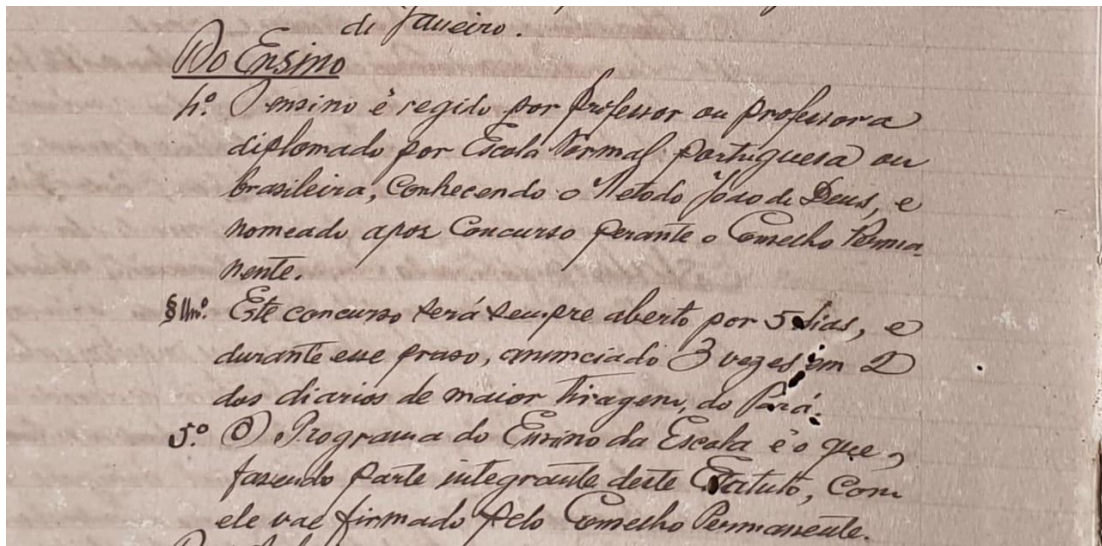 de Janeiro.
Do Ensino
4.º O ensino é regido por professor ou professora
diplomado por Escola Normal Portuguesa ou
brasileira, conhecendo o Metodo João de Deus, e
nomeado apoz concurso perante o Conselho Perma-
nente.
§ Un.º Este concurso será sempre aberto por 5 dias, e
durante esse praso, annunciado 3 vezes em 2
dos diarios de maior tiragem, do Pará.
5.º O Programa do Ensino da Escola é o que,
fazendo parte integrante deste Estatuto, com
ele vae firmado pelo Conselho Permanente.